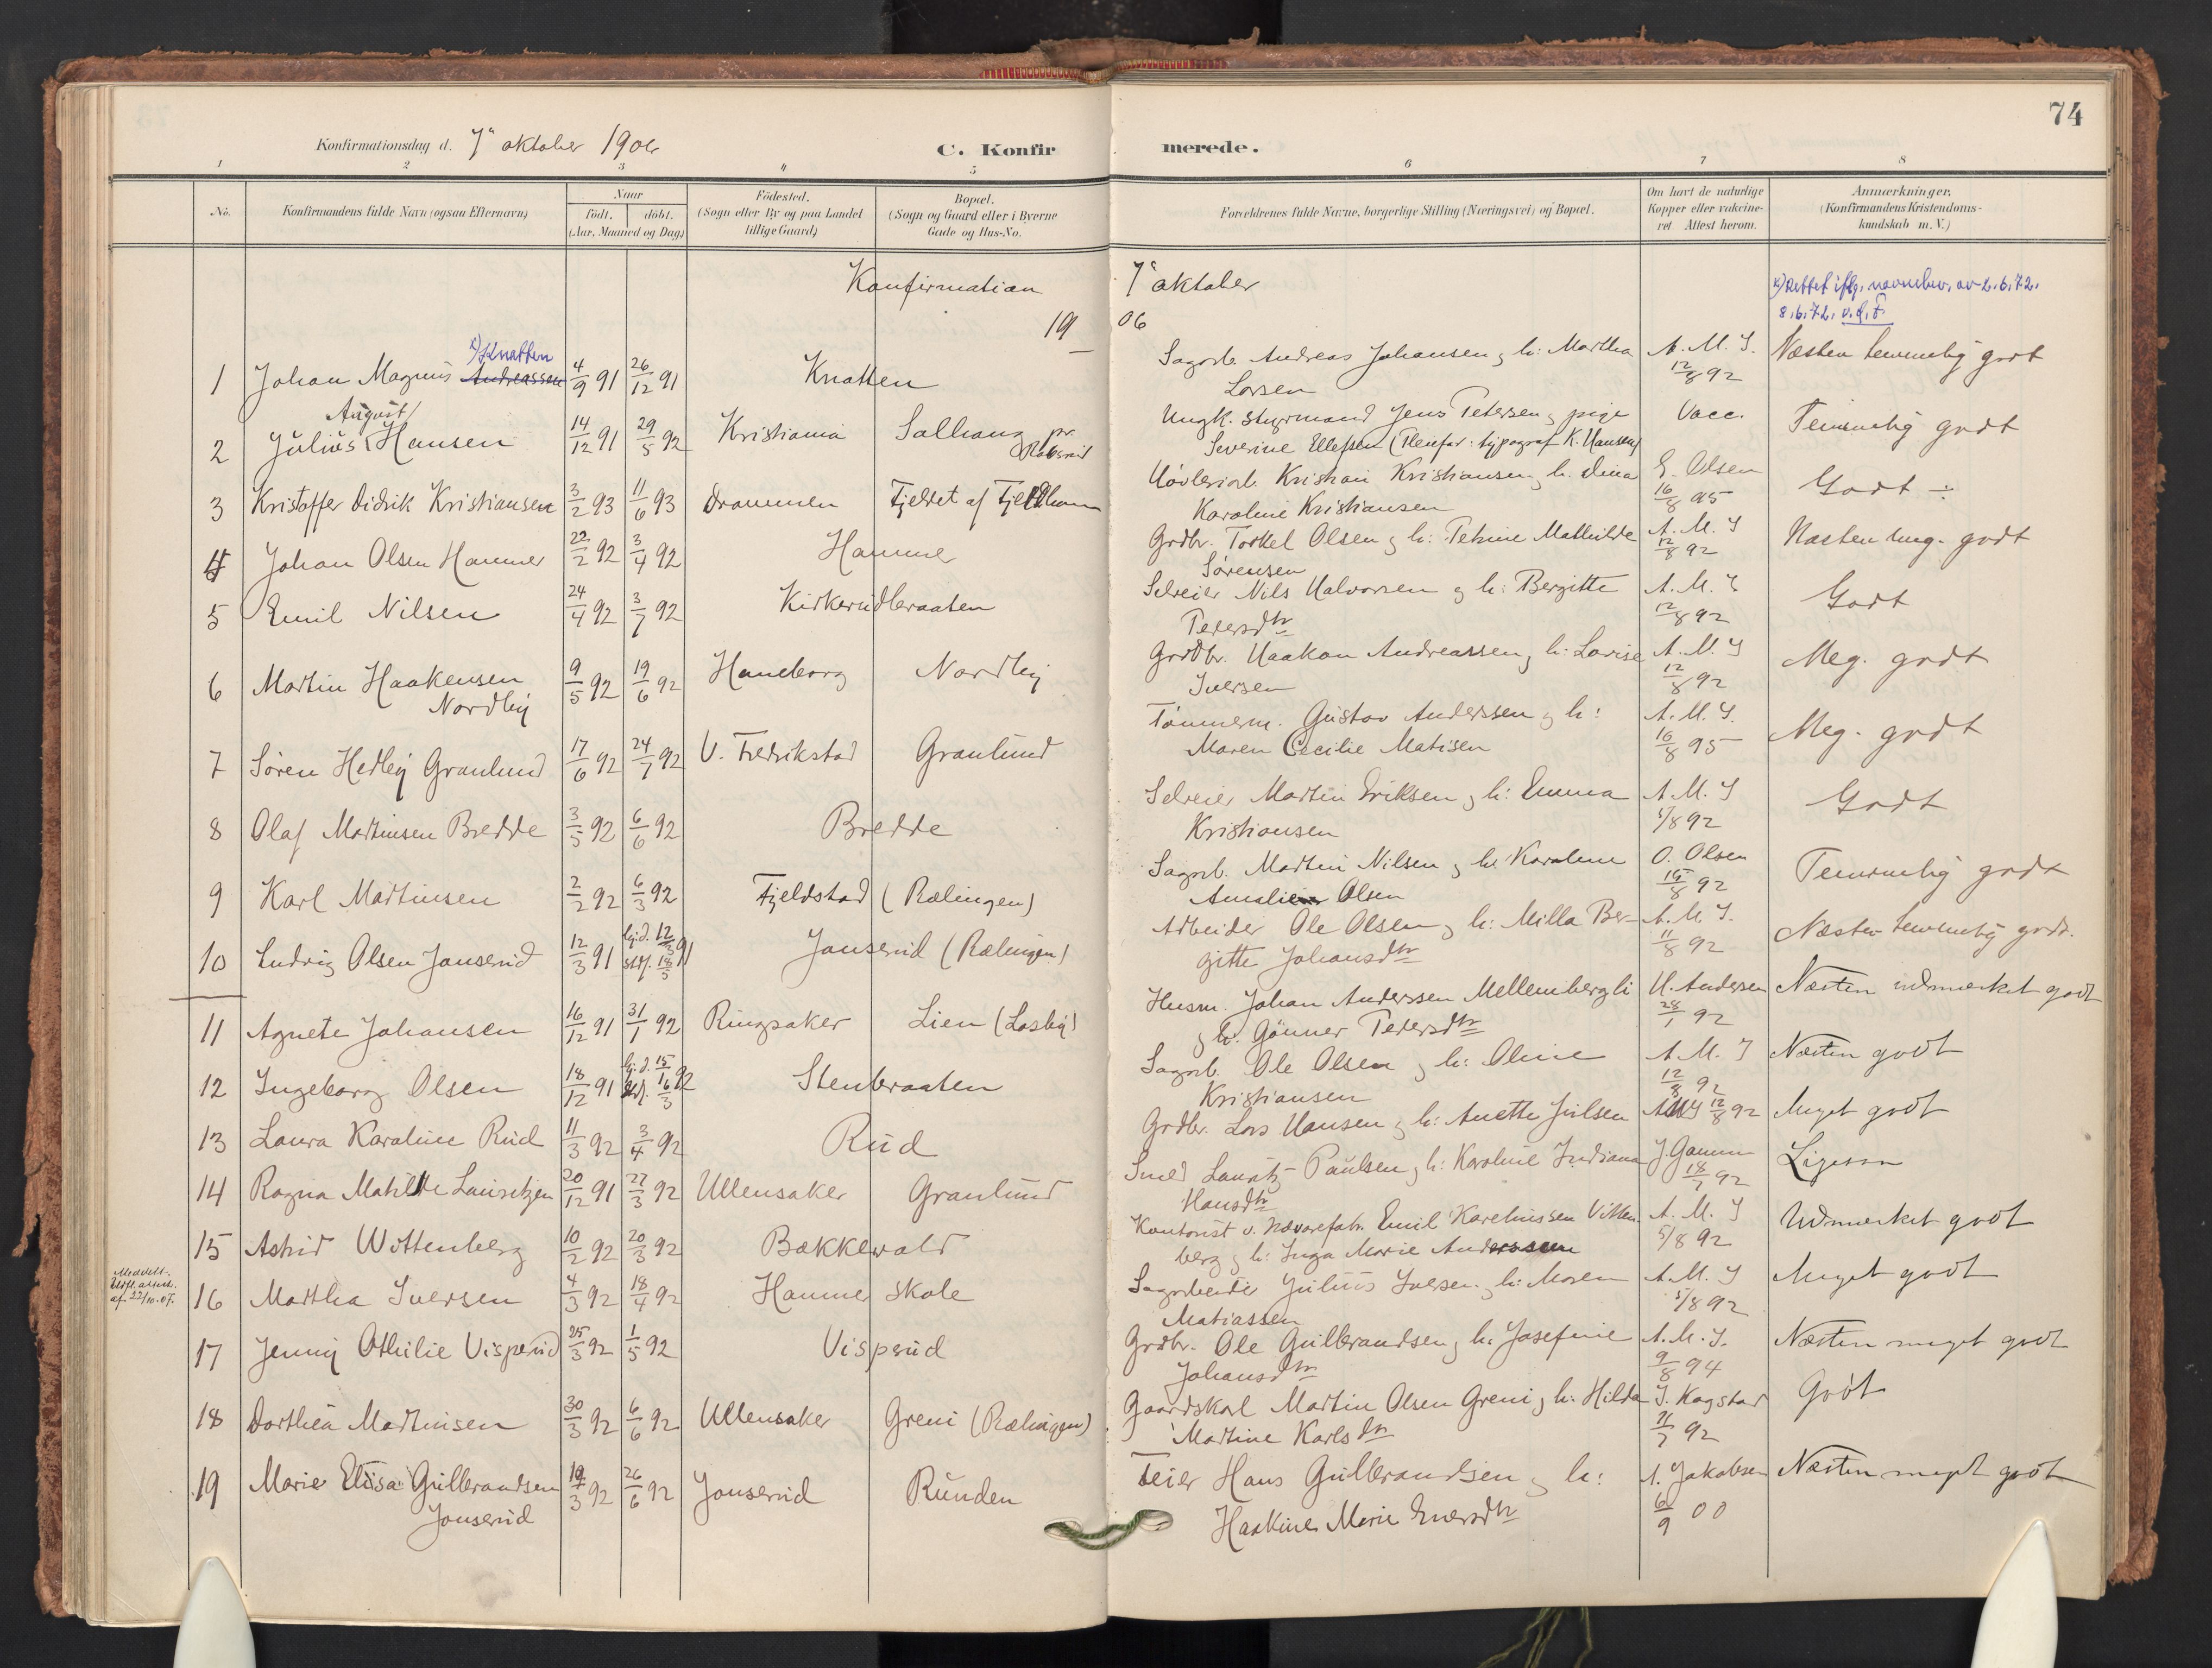 74
Konfirmationsdag d. 7' oktober 1906 C. Konfirmerede.
1 2 3 4 5 6 7 8
No. Konfirmandens fulde Navn (ogsaa Efternavn) Naar født. døbt. (Aar, Maaned og Dag) Födested. (Sogn eller By og paa Landet tillige Gaard) Bopæl. (Sogn og Gaard eller i Byerne Gade og Hus-No. Forældrenes fulde Navne, borgerlige Stilling (Næringsvei) og Bopæl. Om havt de naturlige Kopper eller vakcineret. Attest herom. Anmærkninger. (Konfirmandens Kristendomskundskab m. V.)
Konfirmation 7' oktober
1906
x) Rettet iflg. navnebev. av 2.6.72.
8.6.72.
x) Knatten
1 Johan Magnus Andreassen 4/9 91 26/12 91 Knatten Sagarb. Andreas Johansen og h: Martha Larsen A. M. J. 12/8 92 Næsten temmelig godt
2 Julius August Hansen 14/12 91 29/5 92 Kristiania Solhaug pr. Robsrud Ungk. styrmand Jens Petersen og pige Severine Ellefsen (Plenfar: typograf K. Hansen) Vacc. Temmelig godt
3 Kristoffer Didrik Kristiansen 3/2 93 11/6 93 Drammen Fjeldet af Fjeldham Høvleriarb. Kristian Kristiansen og h. Dina Karoline Kristiansen E. Olsen 16/8 95 Godt ÷
4 Johan Olsen Hammer 22/2 92 3/4 92 Hamme Grdbr. Torkel Olsen og h: Petrine Mathilde Sørensen A. M. J 12/8 92 Næsten meg. godt
5 Emil Nilsen 24/4 92 3/7 92 Kirkerudbraaten Selveier Nils Halvorsen og h: Bergitte Pedersdtr A. M. J 12/8 92 Godt
6 Martin Haakensen Nordby 9/5 92 19/6 92 Haneborg Nordby Grdbr. Haakon Andreassen og h: Lovise Iversen A. M. J 12/8 92 Meg. godt
7 Søren Hedley Granlund 17/6 92 24/7 92 V. Fredrikstad Granlund Tømmerm. Gustav Anderssen og h: Maren Cecilie Matisen A. M. J. 16/8 95 Meg. godt
8 Olaf Martinsen Bredde 3/5 92 6/6 92 Bredde Selveier Martin Eriksen og h: Emma Kristiansen A. M. J 5/8 92 Godt
9 Karl Martinsen 2/2 92 6/3 92 Fjeldstad (Rælingen) Sagarb. Martin Nilsen og h: Karoline Amalie Olsen O. Olsen 15/8 92 Temmelig godt
10 Ludvig Olsen Jonserud 12/3 91 hj.d. 12/3 91 stdf. 18/5 Jonserud (Rælingen) Arbeider Ole Olsen og h: Milla Bergitte Johansdtr A. M. J. 11/8 92 Næsten temmelig godt.
11 Agnete Johansen 16/12 91 31/1 92 Ringsaker Lien (Losby) Husm. Johan Anderssen Mellembergli og h. Gønner Pedersdtr H. Andersen 28/1 92 Næsten udmærket godt
12 Ingeborg Olsen 18/12 91 hj.d. 15/1 92 stdf. 16/3 Stenbraaten Sagarb. Ole Olsen og h: Oline Kristiansen A. M. J 12/8 92 Næsten godt
13 Laura Karoline Rud 11/3 92 3/4 92 Rud Grdbr. Lars Hansen og h: Anette Julsen AMJ 12/8 92 Meget godt
14 Ragna Matilde Lauritzen 20/12 91 27/3 92 Ullensaker Granlund Smed Lauritz Paulsen og h: Karoline Indiana Hansdtr J. Gamm 18/7 92 Ligesaa
15 Astrid Wittenberg 10/2 92 20/3 92 Bækkevold Kontorist v. Nævarefabr. Emil Kareliussen Vittenberg og h: Inga Marie Anderssen A. M. J 5/8 92 Udmærket godt
Meddelt
attest.
af. 22/10.07.
16 Martha Iversen 4/3 92 18/4 92 Hammer skole Sagarbeider Julius Iversen og h: Maren Matiassen A. M. J 5/8 92 Meget godt
17 Jenny Othilie Visperud 25/3 92 1/5 92 Visperud Grdbr. Ole Gulbrandsen og h: Josefine Johansdtr A. M. J. 9/8 94 Næsten meget godt
18 Dorthea Martinsen 30/3 92 6/6 92 Ullensaker Greni (Rælingen) Gaardskarl Martin Olsen Greni og h: Hilda Martine Karlsdtr J. Kogstad 21/7 92 Godt
19 Marie Elisa Gulbrandsen Jonserud 19/3 92 26/6 92 Jonserud Runden Feier Hans Gulbrandsen og h: Haakine Marie Enersdtr A. Jakobsen 6/9 00 Næsten meget godt